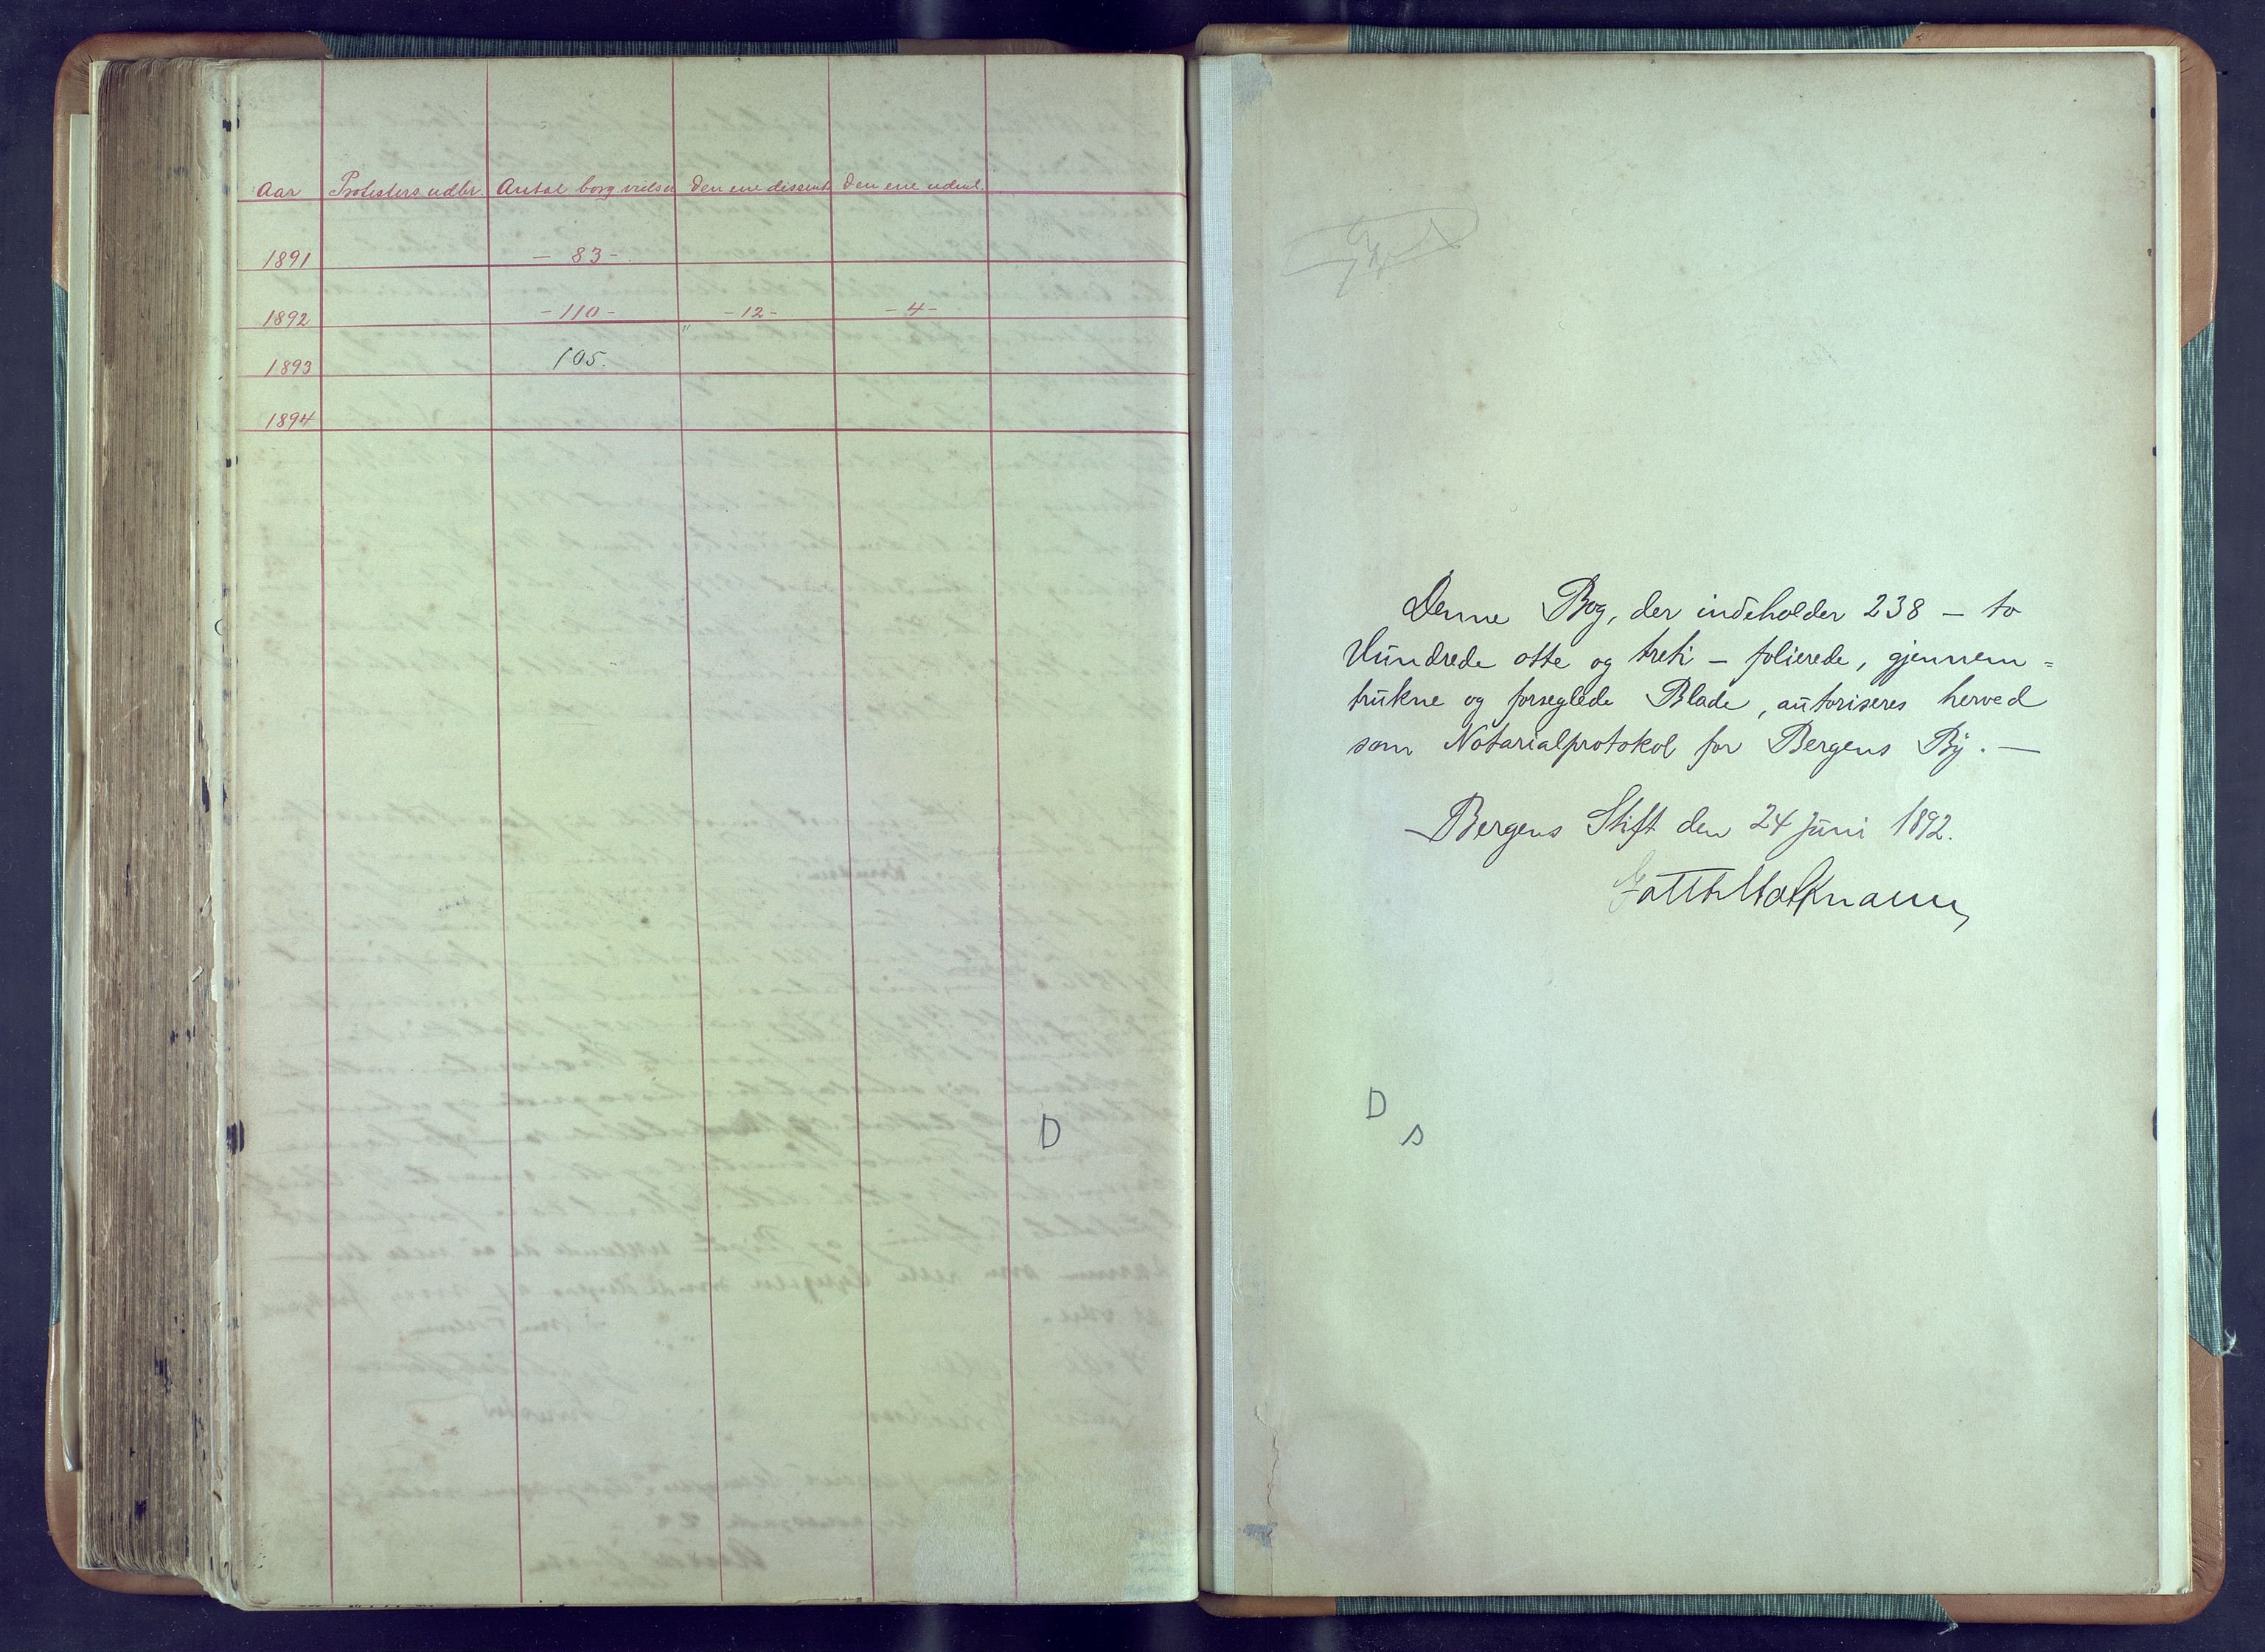 Aar Protesters udbr. Antal borg. vielser den ene dissent. den ene udenl.
1891 - 83 -
1892 - 110 - - 12 - - 4 -
1893 " 105.
1894
D
Denne Bog, der indeholder 238 — to
Hundrede otte og treti — folierede, gjennem=
trukne og forseglede Blade, autoriseres herved
som Notarialprotokol for Bergens By. —
Bergens Stift den 24 Juni 1892.
D
s